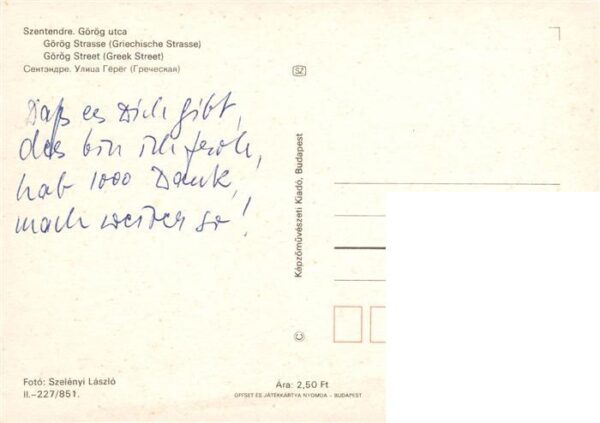 Szentendre. Görög utca
Görög Strasse (Griechische Strasse)
Görög Street (Greek Street)
Сентэндре. Улица Гёрёг (Греческая)
SZ
Daß es Dich gibt,
das bin ich froh,
hab 1000 Dank,
mach weiter so!
Képzőművészeti Kiadó, Budapest
Fotó: Szelényi László
II.–227/851.
Ára: 2,50 Ft
OFFSET ÉS JÁTÉKKÁRTYA NYOMDA – BUDAPEST